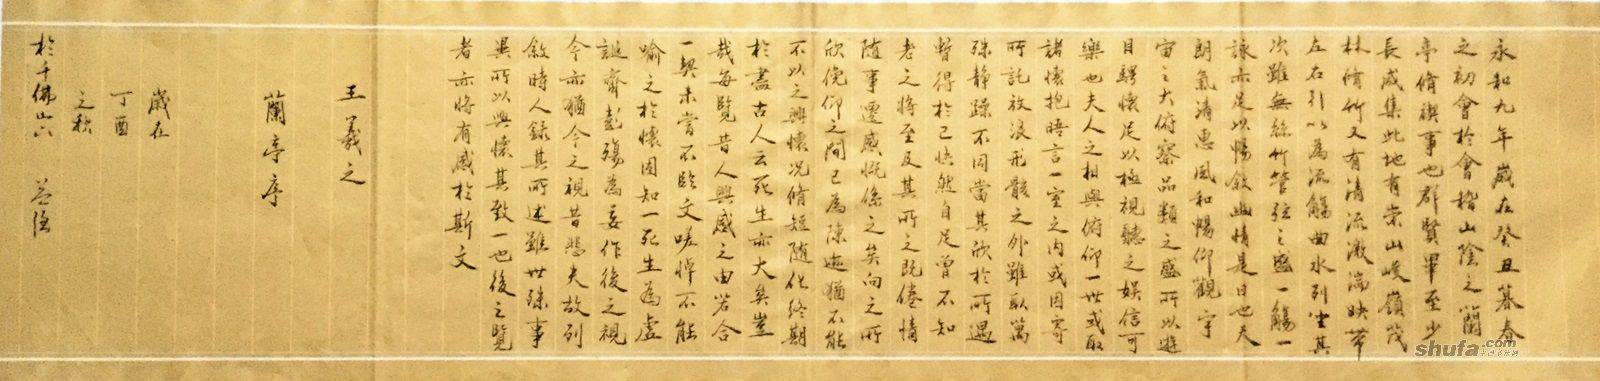 永和九年歲在癸丑暮春
之初會於會稽山陰之蘭
亭脩禊事也群賢畢至少
長咸集此地有崇山峻嶺茂
林脩竹又有清流激湍映帶
左右引以為流觴曲水列坐其
次雖無絲竹管弦之盛一觴一
詠亦足以暢敘幽情是日也天
朗氣清惠風和暢仰觀宇
宙之大俯察品類之盛所以遊
目騁懷足以極視聽之娛信可
樂也夫人之相與俯仰一世或取
諸懷抱晤言一室之內或因寄
所託放浪形骸之外雖取萬
殊靜躁不同當其欣於所遇
暫得於己快然自足曾不知
老之將至及其所之既倦情
隨事遷感慨係之矣向之所
欣俛仰之間已為陳迹猶不能
不以之興懷況脩短隨化終期
於盡古人云死生亦大矣豈
哉每覽昔人興感之由若合
一契未嘗不臨文嗟悼不能
喻之於懷固知一死生為虛
誕齊彭殤為妄作後之視
今亦猶今之視昔悲夫故列
敘時人錄其所述雖世殊事
異所以興懷其致一也後之覽
者亦將有感於斯文
王羲之
蘭亭序
歲在
丁酉
之秋
於千佛山
shufa.com